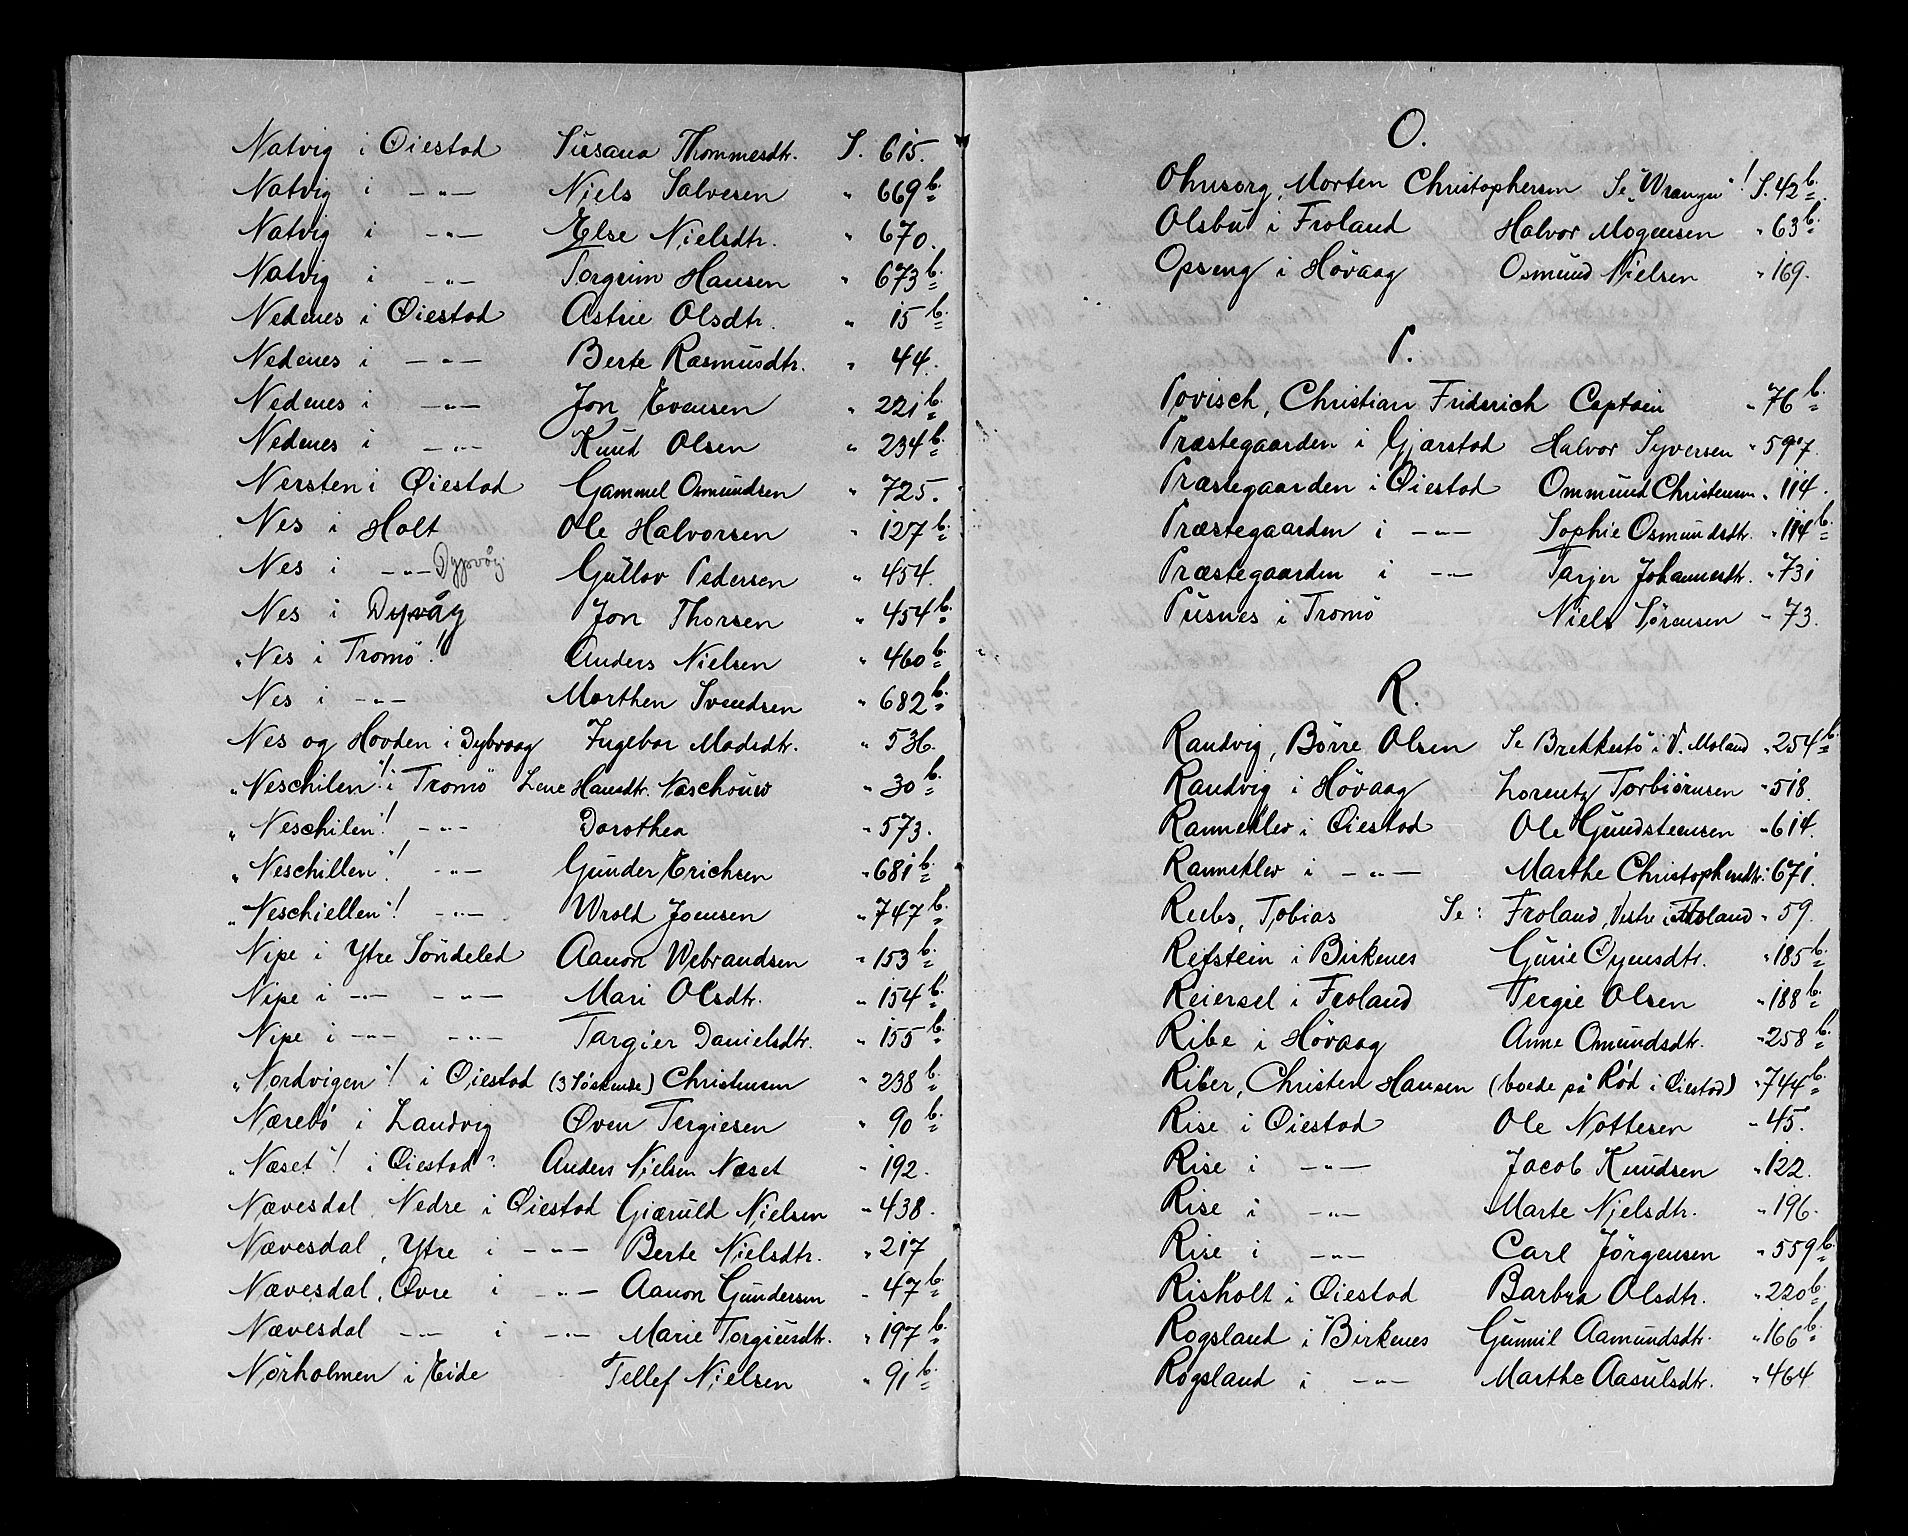 Natvig i Øiestad Susana Thommesdtr. S. 615.
Natvig i -"- Niels Salvesen " 669 b.
Natvig i -"- Else Nielsdtr. " 670.
Natvig i -"- Torgrim Hansen " 673 b.
Nedenes i Øiestad Astrie Olsdtr. " 15 b.
Nedenes i -"- Berte Rasmusdtr. " 44.
Nedenes i -"- Jon Evensen " 221 b.
Nedenes i -"- Knud Olsen " 234 b.
Nersten i Øiestad Gammel Osmundsen " 725.
Nes i Holt Ole Halvorsen " 127 b.
Nes i -"- Dypvåg Gullov Pedersen " 454.
Nes i Dypvåg Jon Thorsen " 454 b.
"Nes i Tromö"! Anders Nielsen " 460 b.
Nes i -"- Morthen Svendsen " 682 b.
Nes og Hovden i Dybvaag Ingebor Madsdtr. " 536.
"Neschilen"! i Tromö Lene Hansdtr. Naschouw " 30 b.
"Neschilen"! -"- Dorothea " 573.
"Neschillen"! -"- Gunder Erichsen " 681 b.
"Neschiellen"! -"- Wrold Joensen " 747 b.
Nipe i Ytre Söndeled Aanon Webrandsen " 153 b.
Nipe i -"- -"- Mari Olsdtr. " 154 b.
Nipe i -"- -"- Targier Danielsdtr. " 155 b.
"Nordvigen"! i Øiestad (3 Söskende) Christensen " 238 b.
Nærebö i Landvig Oven Tergiesen " 90 b.
"Næset"! i Øiestad? Anders Nielsen Næset " 192.
Nævesdal, Nedre i Øiestad Giæruld Nielsen " 438.
Nævesdal, Ytre i -"- Berte Nielsdtr. " 217
Nævesdal, Øvre i -"- Aanon Gundersen " 47 b.
Nævesdal -"- i -"- Marie Torgiusdtr. " 197 b.
Nörholmen i Eide Tellef Nielsen " 91 b.
O.
Ohnsorg, Morten Christophersen Se "Wrangn"! S. 42 b.
Olsbu i Froland Halvor Mogensen " 63 b.
Opseng i Hövaag Osmund Nielsen " 169.
P.
Povisch, Christian Friderich Captain " 76 b.
Præstegaarden i Gjærstad Halvor Syversen " 597.
Præstegaarden i Øiestad Ommund Christensen " 114.
Præstegaarden i -"- Sophie Osmundsdtr. " 114 b.
Præstegaarden i -"- Tarjer Johannesdtr. " 731
Pusnes i Tromö Niels Sörensen " 73.
R.
Randvig, Börre Olsen Se Brekkestö i V. Moland " 254 b.
Randvig i Hövaag Lorentz Torbiörnsen " 518.
Ranneklev i Øiestad Ole Gundstensen " 614.
Ranneklev i -"- Marthe Christophersdtr. " 671.
Reebs, Tobias Se: Froland, Vestre i Froland " 59.
Reistein i Birkenes Gurie Oyensdtr. " 185 b.
Reiersel i Froland Tergie Olsen " 188 b.
Ribe i Hövaag Anne Omundsdtr. " 258 b.
Riber, Christen Hansen (boede på Röd i Øiestad) " 744 b.
Rise i Øiestad Ole Nottesen " 45.
Rise i -"- Jacob Knudsen " 122.
Rise i -"- Marte Nielsdtr. " 196.
Rise i -"- Carl Jörgensen " 559 b.
Risholt i Øiestad Barbra Olsdtr. " 220 b.
Rogsland i Birkenes Gunnil Aamundsdtr. " 166 b.
Rogsland i -"- Marthe Aasulsdtr. " 464